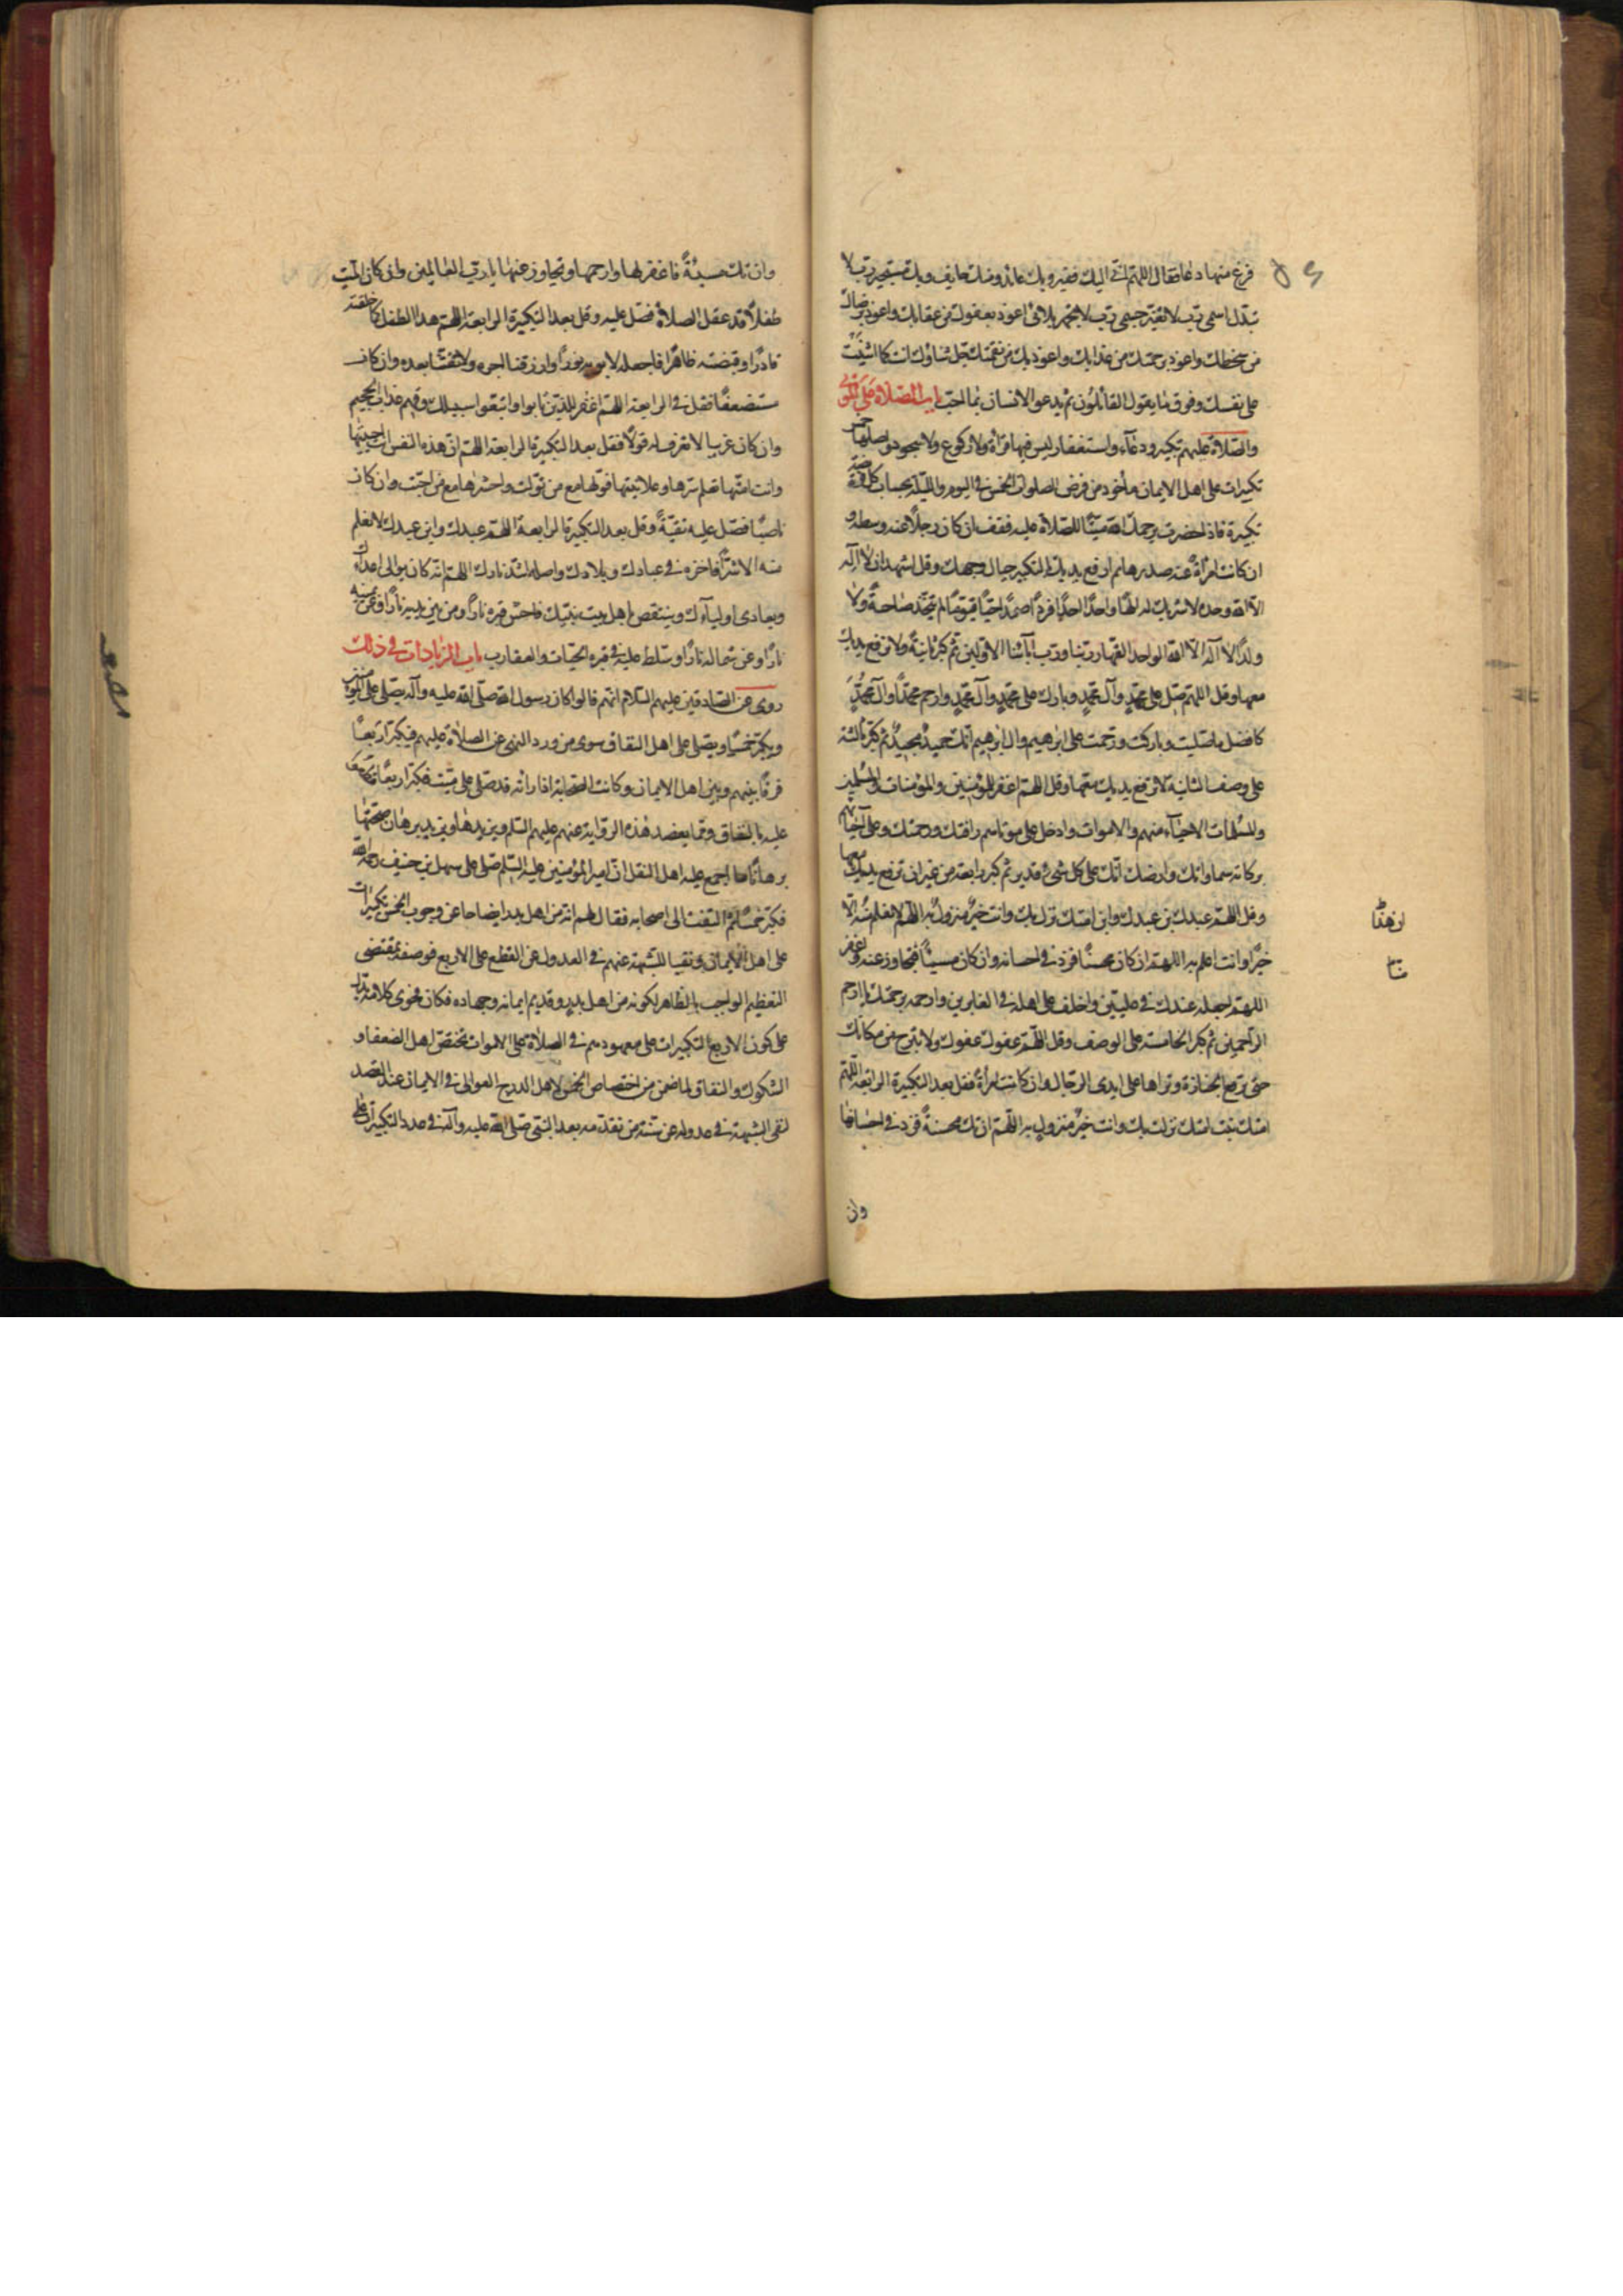 فرغ منها دعا فقال اللهم اني اليك فقير وبك عائذ ومنك خايف وبك مستجير رب لا
تبدل اسمى رب لا تغير جسمى رب لا تجهد بلائى اعوذ بعفوك من عقابك واعوذ برضاك
من سخطك واعوذ برحمتك من عذابك واعوذ بك من نقمتك جل ثناؤك انت كما اثنيت
على نفسك وفوق ما يقول القائلون ثم يدعو الانسان بما احب باب الصلاة على الموتى
والصلاة عليهم تكبير ودعاء واستغفار ليس فيها قرأة ولا ركوع ولا سجود واصلها خمس
تكبيرات على اهل الايمان مأخوذ من فرض الصلوات الخمس فى اليوم والليلة بحساب كل فريضة
تكبيرة فاذا حضرت يرحمك الله ميتا للصلاة عليه فقف ان كان رجلا عند وسطه و
ان كانت امرأة عند صدرها ثم ارفع يديك بالتكبير حيال وجهك وقل اشهد ان لا اله
الا الله وحده لا شريك له الها واحدا احدا فردا صمدا حيا قيوما لم يتخذ صاحبة ولا
ولدا لا اله الا الله الواحد القهار ربنا ورب آبائنا الاولين ثم كبر ثانية ولا ترفع يديك
معها وقل اللهم صل على محمد وآل محمد وبارك على محمد وآل محمد وارحم محمدا وآل محمد
كافضل ما صليت وباركت وترحمت على ابرهيم وال ابرهيم انك حميد مجيد ثم كبر ثالثة
على وصف الثانية لا ترفع يديك معها وقل اللهم اغفر للمؤمنين والمؤمنات والمسلمين
والمسلمات الاحياء منهم والاموات وادخل على موتاهم رافتك ورحمتك وعلى احيائهم
بركات سماواتك وارضك انك على كل شئ قدير ثم كبر رابعة من غير ان ترفع يديك معها
وقل اللهم عبدك بن عبدك وابن امتك نزل بك وانت خير منزول به اللهم لا نعلم منه الا
خيرا وانت اعلم به اللهم ان كان محسنا فزد فى احسانه وان كان مسيئا فتجاوز عنه واغفر
اللهم اجعله عندك فى عليين واخلف على اهله فى الغابرين وارحمه برحمتك يا ارحم
الراحمين ثم كبر الخامسة على الوصف وقل اللهم عفوك عفوك ولا تبرح من مكانك
حتى ترفع الجنازة وتراها على ايدى الرجال وان كانت امرأة فقل بعد التكبيرة الرابعة اللهم
امتك بنت امتك نزلت بك وانت خير منزول به اللهم ان تك محسنة فزد فى احسانها
وان
وان تك مسيئة فاغفر لها وارحمها وتجاوز عنها يا رب العالمين وان كان الميت
طفلا قد عقل الصلاة فصل عليه وقل بعد التكبيرة الرابعة اللهم هذا الطفل كما خلقته
قادرا وقبضته طاهرا فاجعله لابويه نورا وارزقنا اجره ولا تفتنا بعده وان كان
مستضعفا فقل فى الرابعة اللهم اغفر للذين تابوا واتبعوا سبيلك وقهم عذاب الجحيم
وان كان غريبا لا تعرف له قولا فقل بعد التكبيرة الرابعة اللهم ان هذه النفس انت احييتها
وانت امتها تعلم سرها وعلانيتها فولها مع من تولت واحشرها مع من احبت وان كان
ناصبا فصل عليه تقية وقل بعد التكبيرة الرابعة اللهم عبدك وابن عبدك لا نعلم
منه الا شرا فاخزه فى عبادك وبلادك واصله اشد نارك اللهم انه كان يوالى اعداءك
ويعادى اولياءك ويبغض اهل بيت نبيك فاحش قبره نارا ومن بين يديه نارا وعن يمينه
نارا وعن شماله نارا وسلط عليه فى قبره الحيات والعقارب باب الزيادات فى ذلك
روى عن الصادقين عليهم السلام انهم قالوا كان رسول الله صلى الله عليه وآله يصلى على المؤمنين
ويكبر خمسا ويصلى على اهل النفاق سوى من ورد النهى عن الصلاة عليهم فيكبر اربعا
فرقا بينهم وبين اهل الايمان وكانت الصحابة اذا راته قد صلى على ميت فكبر اربعا قطعوا
عليه بالنفاق ومما يعضد هذه الرواية عنهم عليهم السلم ويزيدها ويزيد برهان صحتها
برهانا ما اجمع عليه اهل النقل ان امير المؤمنين عليه السلم صلى على سهل بن حنيف رحمه الله
فكبر خمسا ثم التفت الى اصحابه فقال لهم انه من اهل بدر ايضاحا عن وجوب الخمس تكبيرات
على اهل الايمان ونفيا للشبهة عنهم فى العدول عن القطع على الاربع فوصفه بمقتضى
التعظيم الواجب بالظاهر لكونه من اهل بدر وقديم ايمانه وجهاده فكان فحوى كلامه يدل
على كون الاربع التكبيرات على معهودهم فى الصلاة على الاموات تختص اهل الضعفا و
الشكوك والنفاق لما ضمن من اختصاص الخمس لاهل الدرج العوالى فى الايمان عند القصد
لنفى الشبهة فى عدوله عن سنة من تقدمه بعد النبى صلى الله عليه وآله فى عدد التكبيرات على